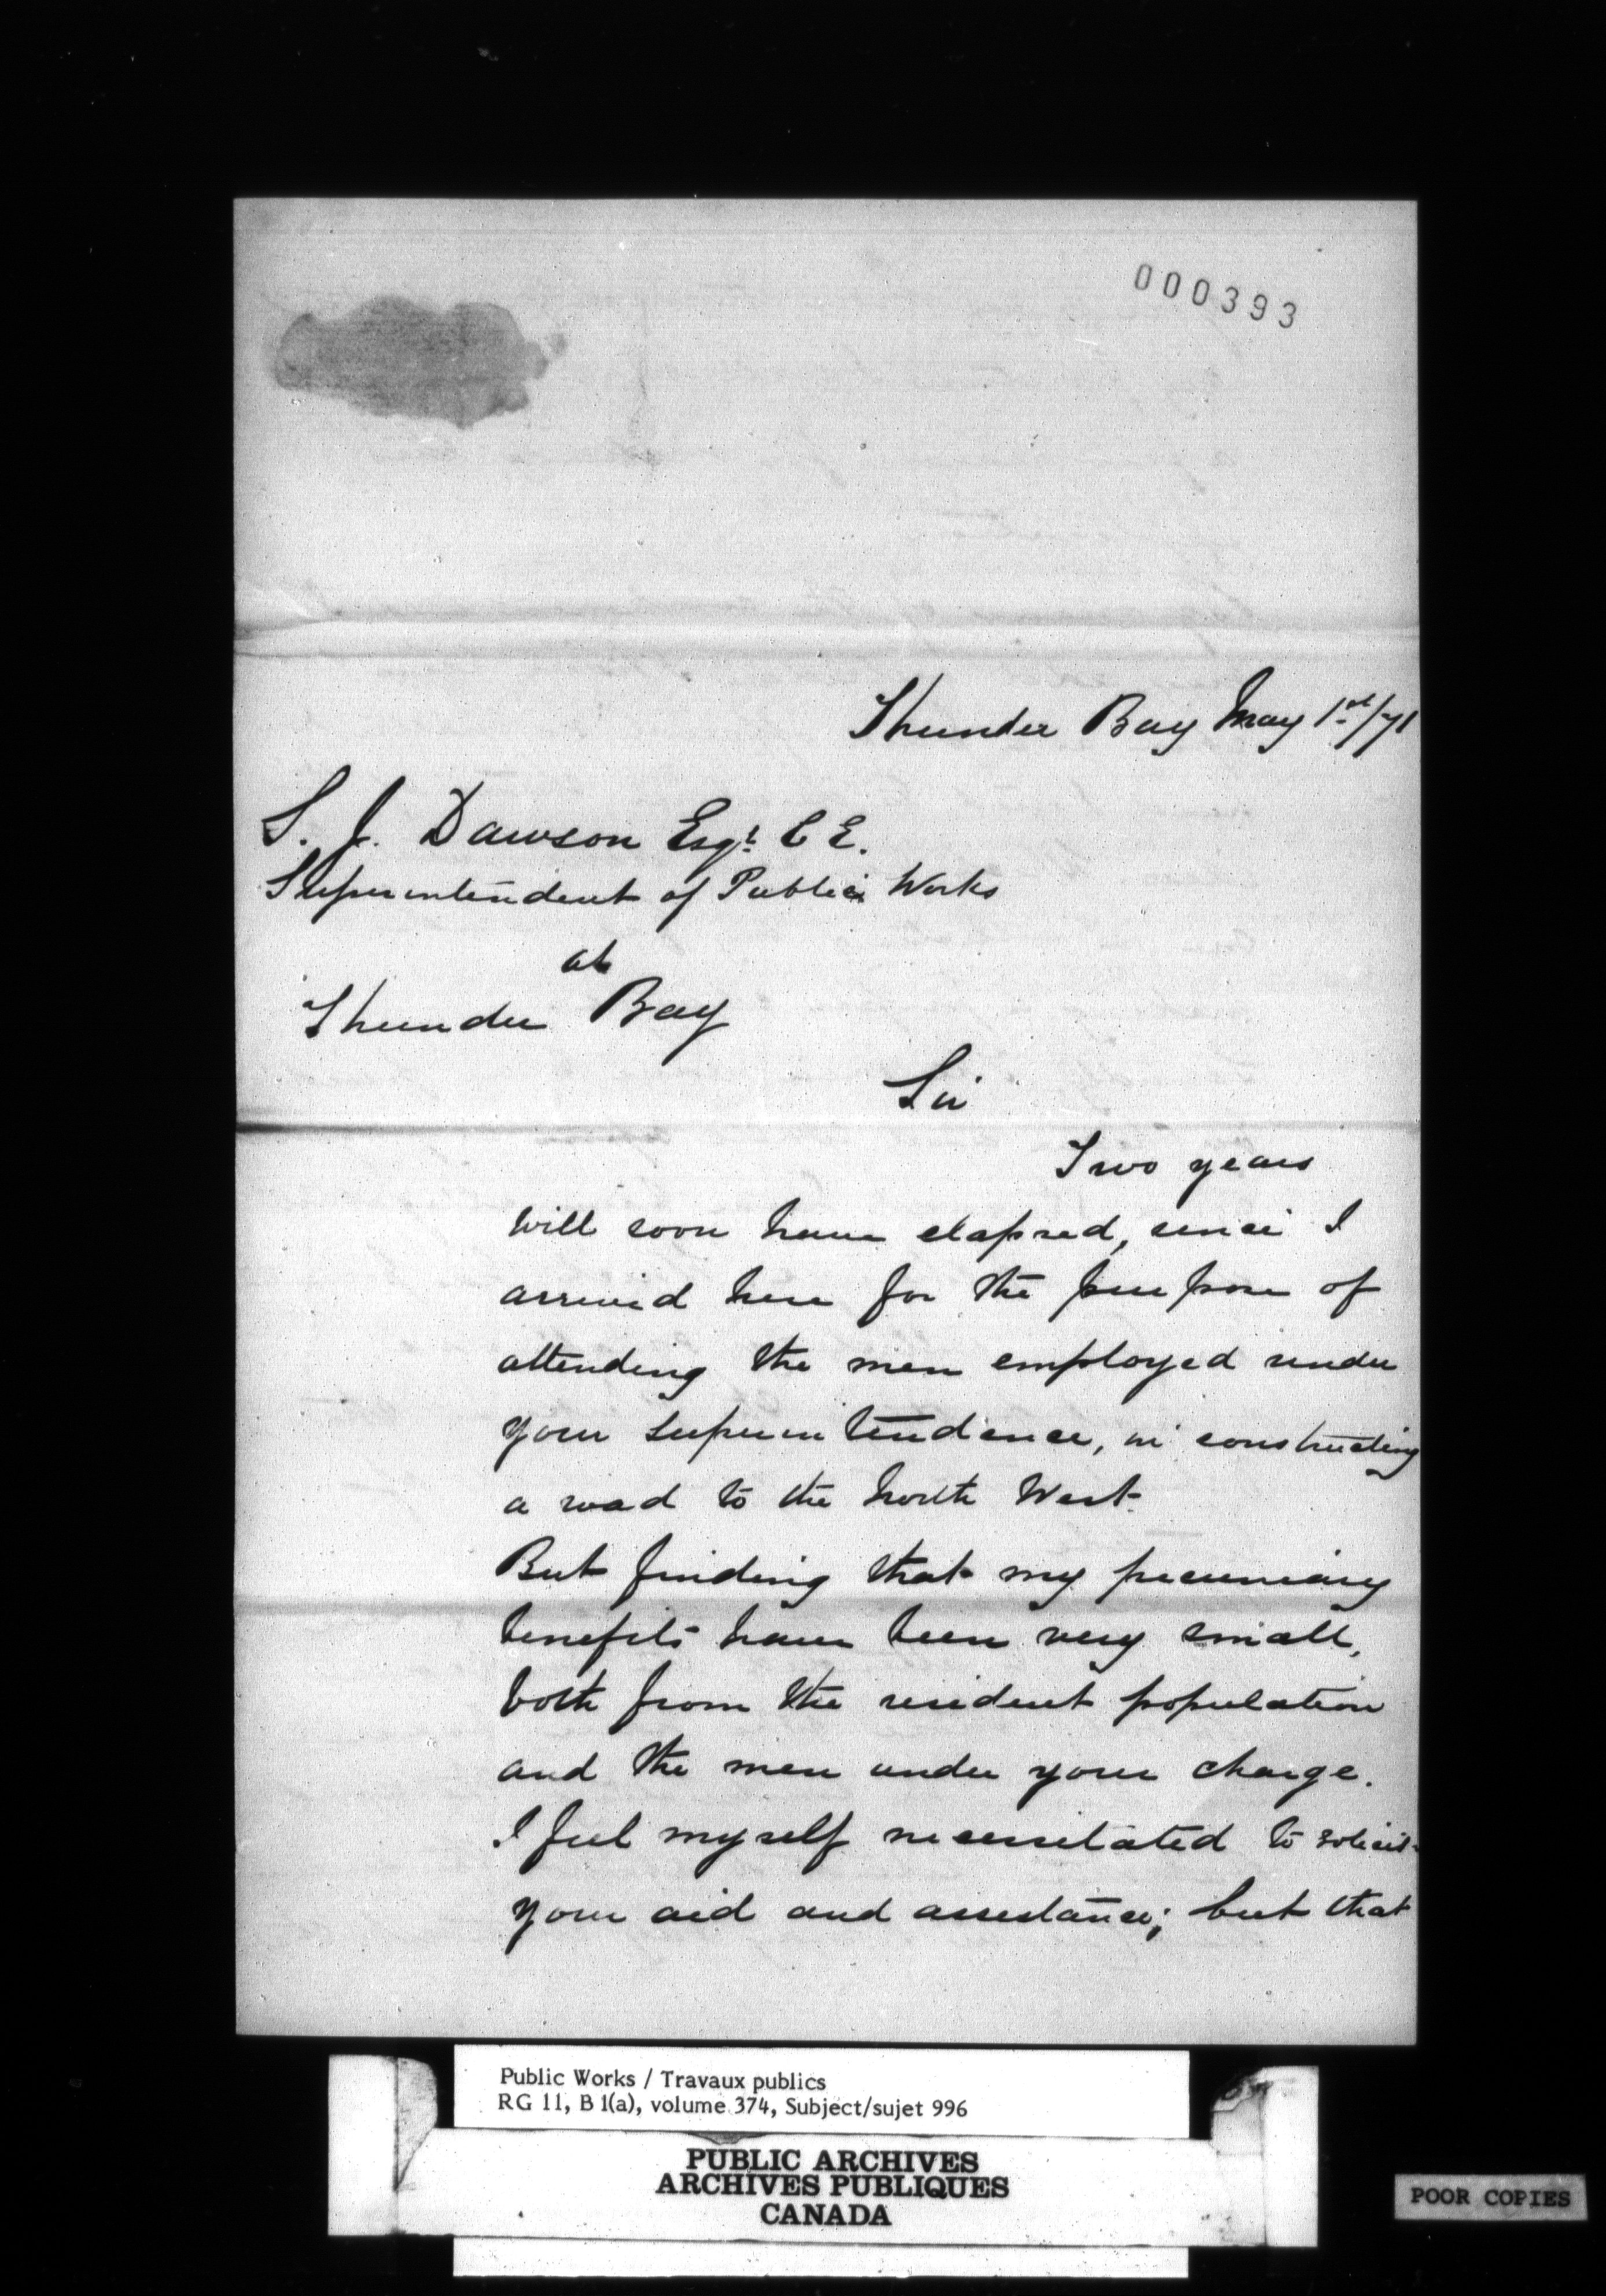 000393
Thunder Bay May 1st/71
S. J. Dawson Esqr. C E.
Superintendent of Public Works
at
Thunder Bay
Sir
Two years
will soon have elapsed, since I
arrived here for the purpose of
attending the men employed under
your superintendence, in constructing
a road to the North West.
But finding that my pecuniary
benefits have been very small,
both from the resident population
and the men under your charge.
I feel myself necessitated to solicit
your aid and assistance; but that
Public Works / Travaux publics
RG 11, B 1(a), volume 374, Subject/sujet 996
PUBLIC ARCHIVES
ARCHIVES PUBLIQUES
CANADA
POOR COPIES